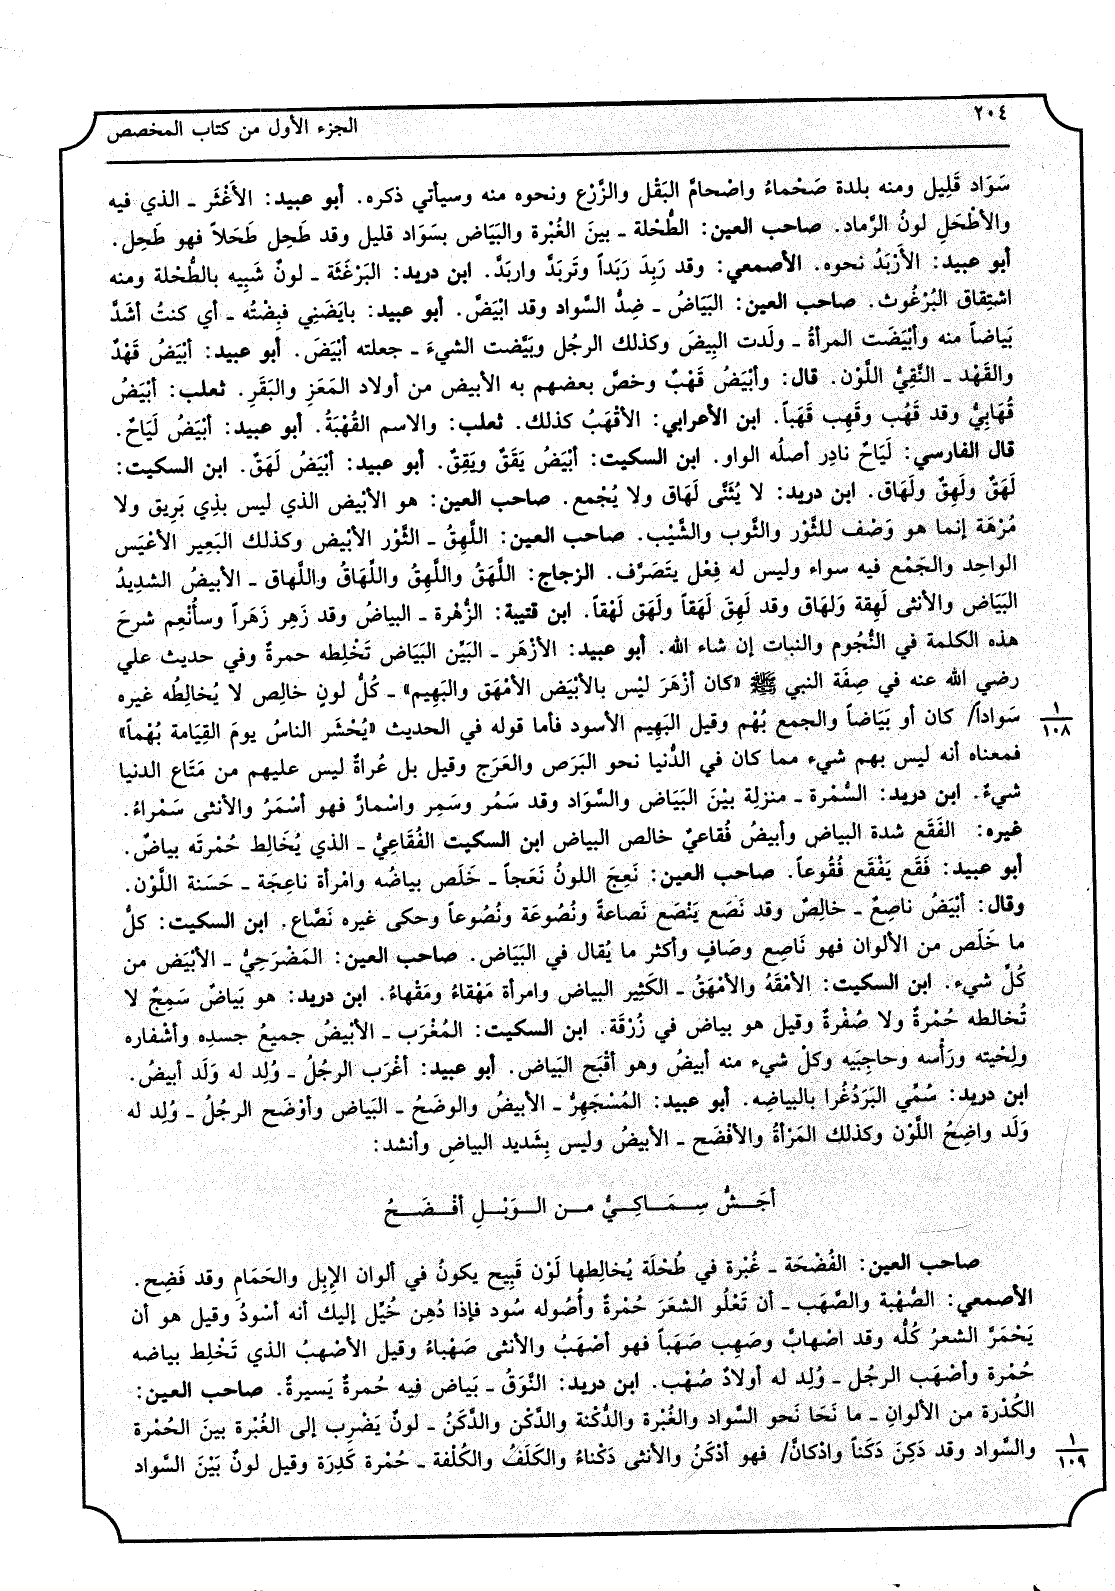 ٢٠٤
الجزء الأول من كتاب المخصص
سَوَاد قَلِيل ومنه بلدة صَحْماءُ واصْحامَّ البَقْل والزَّرْع ونحوه منه وسيأتي ذكره. أبو عبيد: الأَغْثَر ـ الذي فيه
والأطْحَلِ لونُ الرَّماد. صاحب العين: الطُّحْلة ـ بينَ الغُبْرة والبَيَاض بسَوَاد قليل وقد طَحِل طَحَلاً فهو طَحِل.
أبو عبيد: الأرْبَدُ نحوه. الأصمعي: وقد رَبِدَ رَبَداً وتَربَدَّ واربَدَّ. ابن دريد: البَرْغَثَة ـ لونٌ شَبِيه بالطُّحْلة ومنه
اشتِقاق البُرْغُوث. صاحب العين: البَيَاضُ ـ ضِدُّ السَّواد وقد ابْيَضَّ. أبو عبيد: بايَضَنِي فبِضْتُه ـ أي كنتُ أشَدَّ
بَياضاً منه وأبْيَضَت المرأةُ ـ ولَدت البِيضَ وكذلك الرجُل وبَيَّضت الشيءَ ـ جعلته أبْيَضَ. أبو عبيد: أبْيَضُ قَهْدٌ
والقَهْد ـ النَّقِيُّ اللَّوْن. قال: وأبْيَضُ قَهْبٌ وخصَّ بعضهم به الأبيض من أولاد المَعَزِ والبَقَرِ. ثعلب: أبْيَضُ
قُهَابِيٌّ وقد قَهُب وقَهِب قَهَباً. ابن الأعرابي: الأقْهَبُ كذلك. ثعلب: والاسم القُهْبَةُ. أبو عبيد: أبْيَضُ لَيَاحٌ.
قال الفارسي: لَيَاحٌ نادِر أصلُه الواو. ابن السكيت: أبْيَضُ يَقَقٌ ويَقِقٌ. أبو عبيد: أبْيَضُ لَهَقٌ. ابن السكيت:
لَهَقٌ ولَهِقٌ ولَهَاق. ابن دريد: لا يُثَنَّى لَهَاق ولا يُجْمع. صاحب العين: هو الأبْيض الذي ليس بذِي بَرِيق ولا
مُرْهَة إنما هو وَصْف للثَّوْر والثَّوب والشَّيْب. صاحب العين: اللَّهِقُ ـ الثَّوْر الأبْيض وكذلك البَعِير الأعْيَس
الواحِد والجَمْع فيه سواء وليس له فِعْل يتَصَرَّف. الزجاج: اللَّهَقُ واللَّهِقُ واللَّهَاقُ واللَّهاق ـ الأبيضُ الشديدُ
البَيَاض والأنثى لَهِقة وَلهَاق وقد لَهِقَ لَهَقاً ولَهَق لَهْقاً. ابن قتيبة: الزُّهْرة ـ البياضُ وقد زَهِر زَهَراً وسأُنْعِم شرحَ
هذه الكلمة في النُّجُوم والنبات إن شاء الله. أبو عبيد: الأزْهَر ـ البَيِّن البَيَاض تَخْلِطه حمرةٌ وفي حديث علي
رضي الله عنه في صِفَة النبي ﷺ «كان أزْهَرَ ليْس بالأبْيَض الأمْهَق والبَهِيم» ـ كُلُّ لونٍ خالِص لا يُخالِطُه غيره
سَواداً/ كان أو بَيَاضاً والجمع بُهْم وقيل البَهِيم الأسود فأما قوله في الحديث «يُحْشَر الناسُ يومَ القِيَامة بُهْماً»
١
١٠٨
فمعناه أنه ليس بهم شيء مما كان في الدُّنيا نحو البَرَص والعَرَج وقيل بل عُراةٌ ليس عليهم من مَتَاع الدنيا
شيءٌ. ابن دريد: السُّمْرة ـ منزلة بيْنَ البَيَاض والسَّوَاد وقد سَمُر وسَمِر واسْمارَّ فهو أسْمَرُ والأنثى سَمْراءُ.
غيره: الفَقَع شدة البياض وأبيضُ فُقاعيٌ خالص البياض ابن السكيت الفُقَاعِيُّ ـ الذي يُخَالِط حُمْرتَه بياضٌ.
أبو عبيد: فَقَع يَفْقَع فُقُوعاً. صاحب العين: نَعِجَ اللونُ نَعَجاً ـ خَلَص بياضُه وامْرأة ناعِجَة ـ حَسَنة اللَّوْن.
وقال: أبْيَضُ ناصِعٌ ـ خالِصٌ وقد نَصَع يَنْصَع نَصاعةً ونُصُوعَة ونُصُوعاً وحكى غيره نَصَّاع. ابن السكيت: كلُّ
ما خَلَص من الألوان فهو نَاصِع وصَافٍ وأكثر ما يُقال في البَيَاض. صاحب العين: المَضْرَحِيُّ ـ الأبْيَض من
كُلِّ شيء. ابن السكيت: الأمْقَهُ والأمْهَقُ ـ الكَثِير البياض وامرأة مَهْقاءُ ومَقْهاءُ. ابن دريد: هو بَياضٌ سَمِجٌ لا
تُخالطه حُمْرةٌ ولا صُفْرةٌ وقيل هو بياض في زُرْقَة. ابن السكيت: المُغْرَب ـ الأبْيضُ جميعُ جسدِه وأشْفاره
ولِحْيته ورَأْسه وحاجِبَيه وكلْ شيء منه أبيضُ وهو أقْبَح البَياض. أبو عبيد: أغْرَب الرجُلُ ـ وُلِد له وَلَد أبيضُ.
ابن دريد: سُمِّي البَرَدُغُرا بالبياضِه. أبو عبيد: المُسْجَهِرُّ ـ الأبيضُ والوضَحُ ـ البَياض وأوْضَح الرجُلُ ـ وُلِد له
وَلَد واضِحُ اللَّوْن وكذلك المَرْأةُ والأفْضَح ـ الأبيضُ وليس بِشَديد البياضِ وأنشد:
أجَــشُّ سِــمَــاكِــيٌّ مــن الــوَبْــلِ أفْــضَــحُ
صاحب العين: الفُضْحَة ـ غُبْرة في طُحْلَة يُخالِطها لَوْن قَبِيح يكونُ في ألوان الإبِلِ والحَمَامِ وقد فَضِح.
الأصمعي: الصُّهْبة والصَّهَب ـ أن تَعْلُو الشعَرَ حُمْرةٌ وأُصُوله سُود فإذا دُهِن خُيِّل إليك أنه أسْودُ وقيل هو أن
يَحْمَرَّ الشعرُ كُلُّه وقد اصْهابَّ وصَهِب صَهَباً فهو أصْهَبُ والأنثى صَهْباءُ وقيل الأصْهبُ الذي تَخْلِط بياضه
حُمْرة وأصْهَب الرجُل ـ وُلِد له أولادٌ صُهْب. ابن دريد: النَّوَقُ ـ بَياض فيه حُمرةٌ يَسيرةٌ. صاحب العين:
الكُدْرة من الألوانِ ـ ما نَحَا نَحو السَّواد والغُبْرة والدُّكْنة والدَّكْن والدَّكَنُ ـ لونٌ يَضْرِب إلى الغُبْرة بينَ الحُمْرة
والسَّواد وقد دَكِنَ دَكَناً وادْكانَّ/ فهو أدْكَنُ والأنثى دَكْناءُ والكَلَفُ والكُلْفة ـ حُمْرة كَدِرَة وقيل لونٌ بَيْنَ السَّواد
١
١٠٩